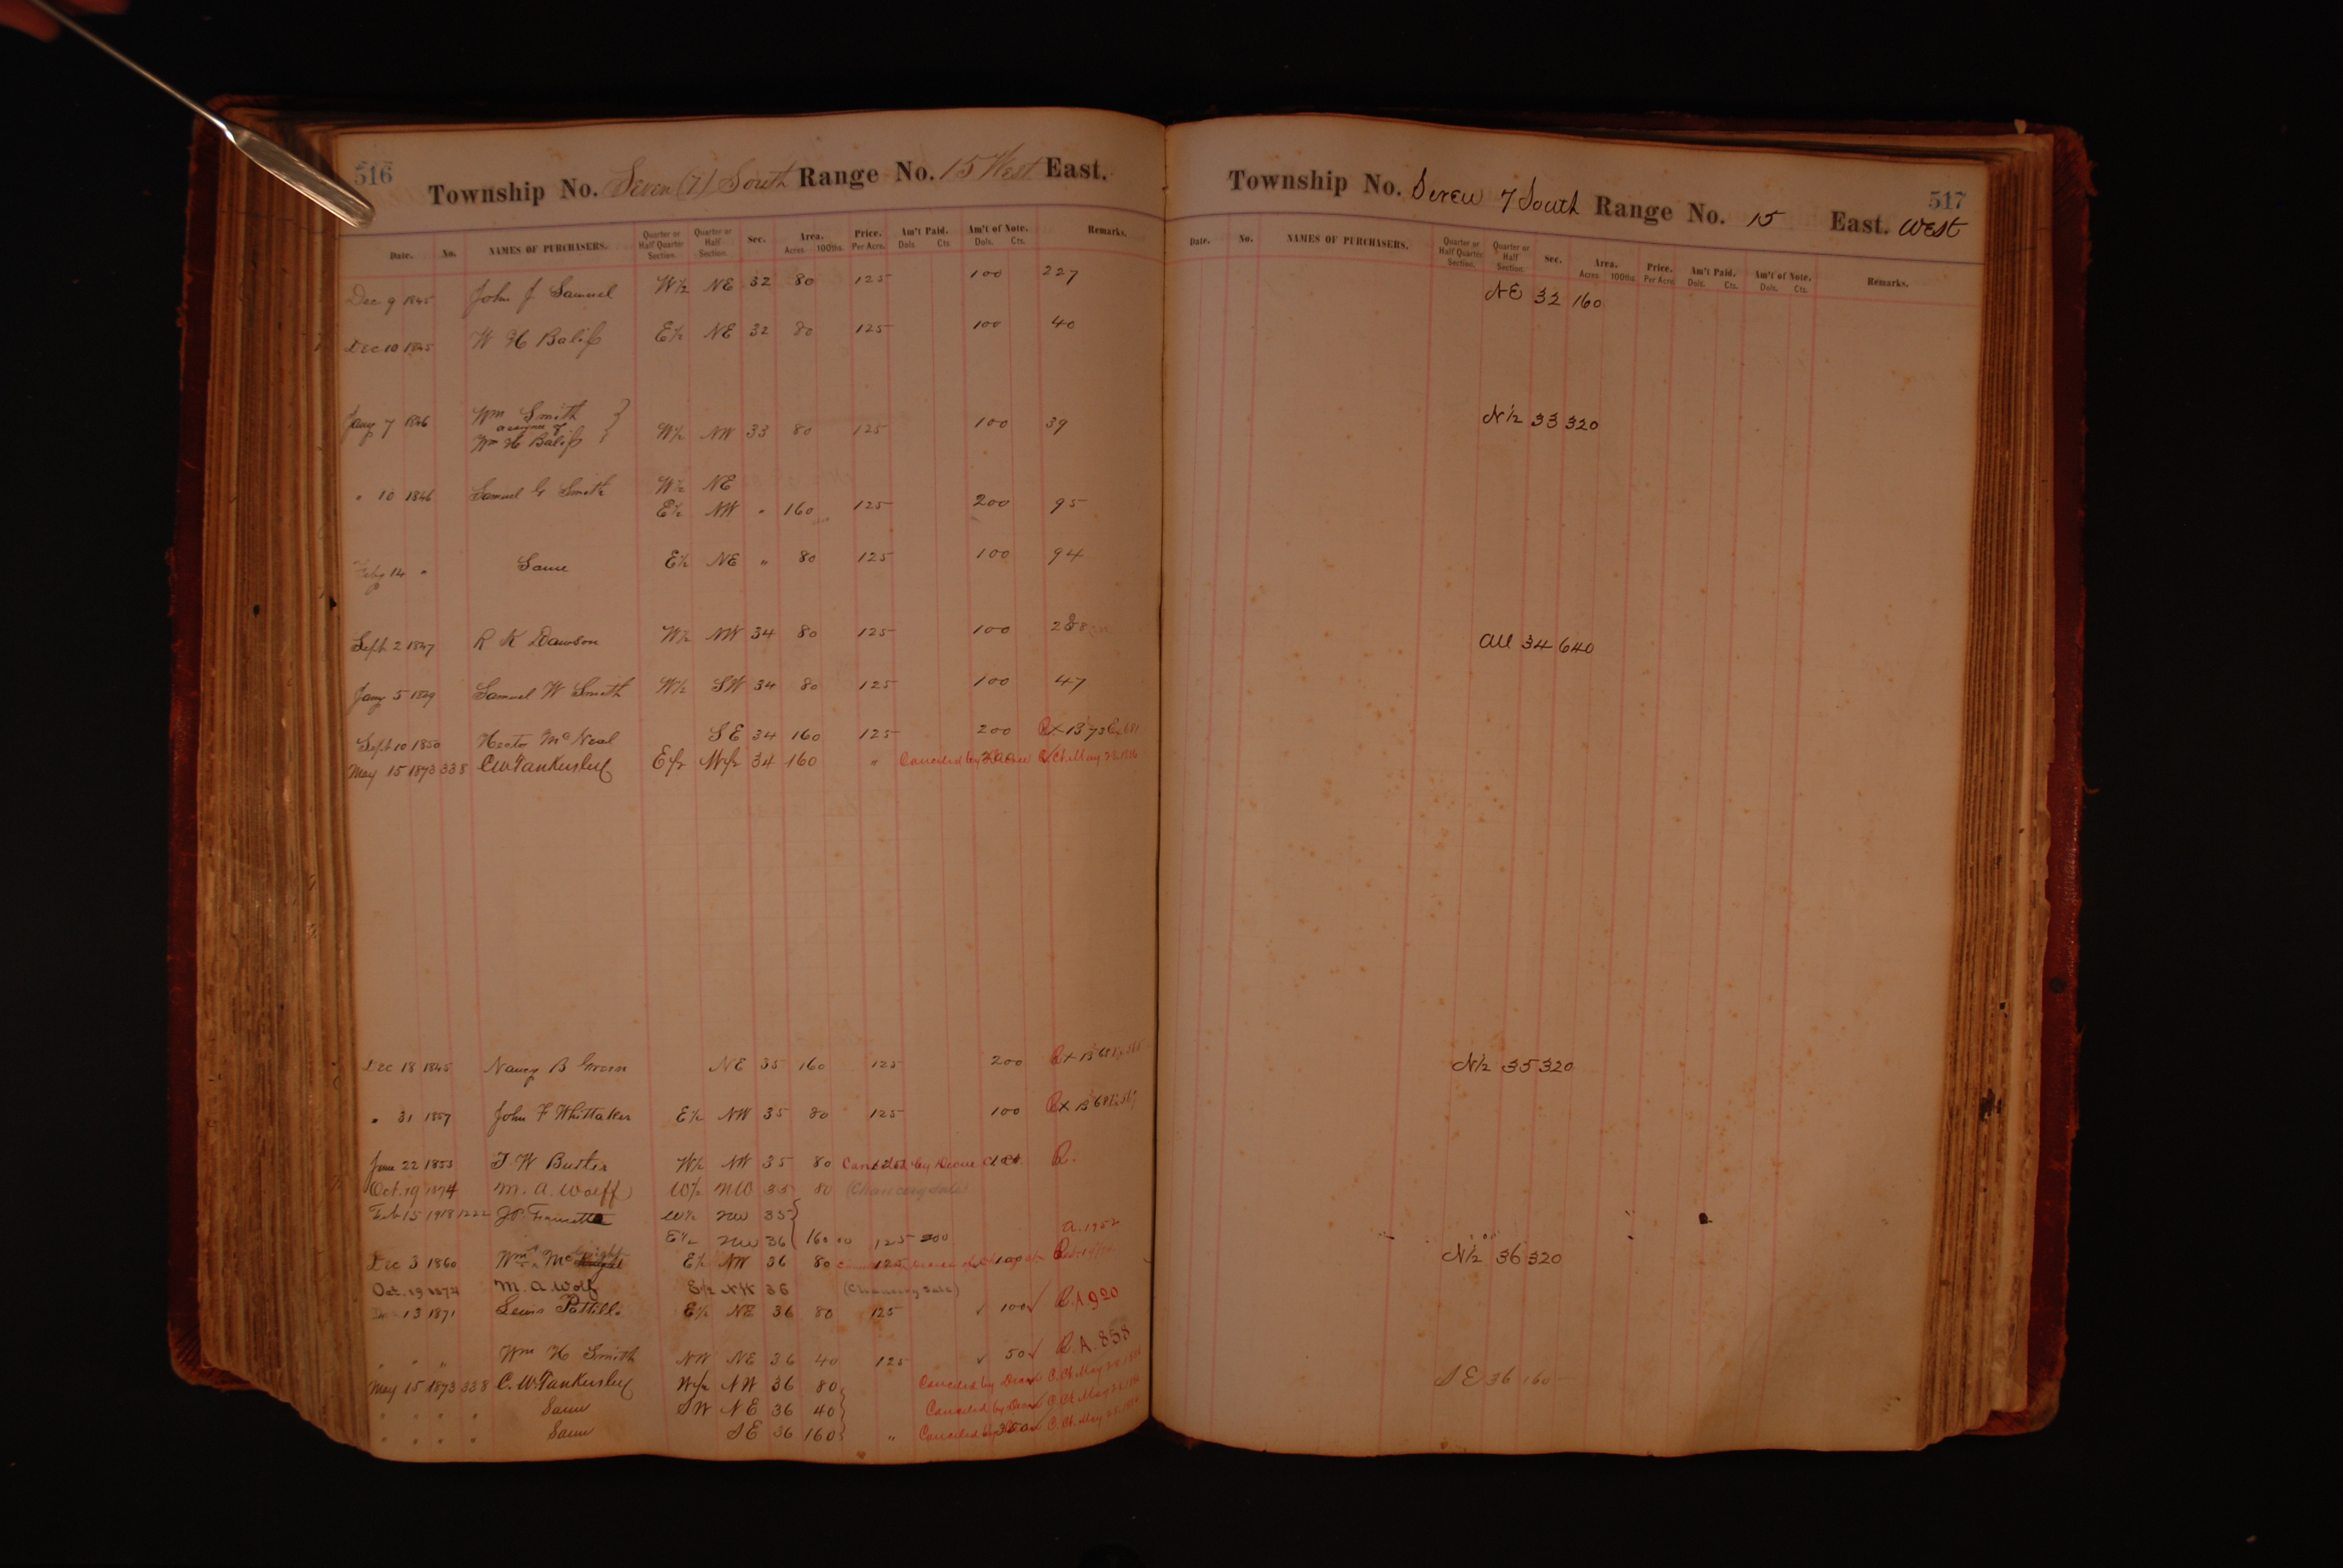 516
Township No. Seven (7) South Range No. 15 West East.
Date. No. NAMES OF PURCHASERS. Quarter or Half Quarter Section. Quarter or Half Section. Sec. Area. Acres 100ths. Price. Per Acre. Am't Paid. Dols. Cts. Am't of Note. Dols. Cts. Remarks.
Dec 9 1845 John J Samuel W½ NE 32 80 125 100 227
Dec 10 1845 W H Balifs E½ NE 32 80 125 100 40
Wm Smith
Jany 7 1846 assignee of W½ NW 33 80 125 100 39
Wm H Balifs
" 10 1846 Samuel G Smith W½ NE
E½ NW " 160 125 200 95
Feby 14 " Same E½ NE " 80 125 100 94
Sept 2 1847 R K Dawson W½ NW 34 80 125 100 288
Jany 5 1849 Samuel W Smith W½ SW 34 80 125 100 47
Sept 10 1850 Hector McNeal SE 34 160 125 200
May 15 1873 338 C W Tankersley E½ W½ 34 160 " Canceled by Decree C. Ct. May 28.
Dec 18 1845 Nancy B Green NE 35 160 125 200
" 31 1857 John F Whittaker E½ NW 35 80 125 100
June 22 1853 T W Buster W½ NW 35 80 125 Canceled by Decree 100 R.
Oct. 19 1874 M. A. Wolff W½ NW 35 80 (Chancery Sale)
Feb 15 1918 1222 W½ NW 35
E½ NW 36 160 00 125 200 A. 1952
Dec 3 1860 Wm McKnight E½ NW 36 80 125 100
Oct. 19 1874 M. A. Wolf E½ NW 36 (Chancery Sale)
13 1871 Lewis Pattillo E½ NE 36 80 125 ✓ 100 ✓ R. A 920
" " " Wm H Smith NW NE 36 40 125 ✓ 50 ✓ R. A. 858
May 15 1873 338 C. W. Tankersley W½ NW 36 80 Canceled by Decree C. Ct. May 28.
" " " " Same SW NE 36 40 Canceled by Decree C. Ct. May 28.
" " " " Same SE 36 160 " Canceled by 350 C. Ct. May 28.
517
Township No. Seven 7 South Range No. 15 East. West
Date. No. NAMES OF PURCHASERS. Quarter or Half Quarter Section. Quarter or Half Section. Sec. Area. Acres 100ths. Price. Per Acre Am't Paid. Dols. Cts. Am't of Note. Dols. Cts. Remarks.
NE 32 160
N½ 33 320
All 34 640
N½ 35 320
N½ 36 320
SE 36 160